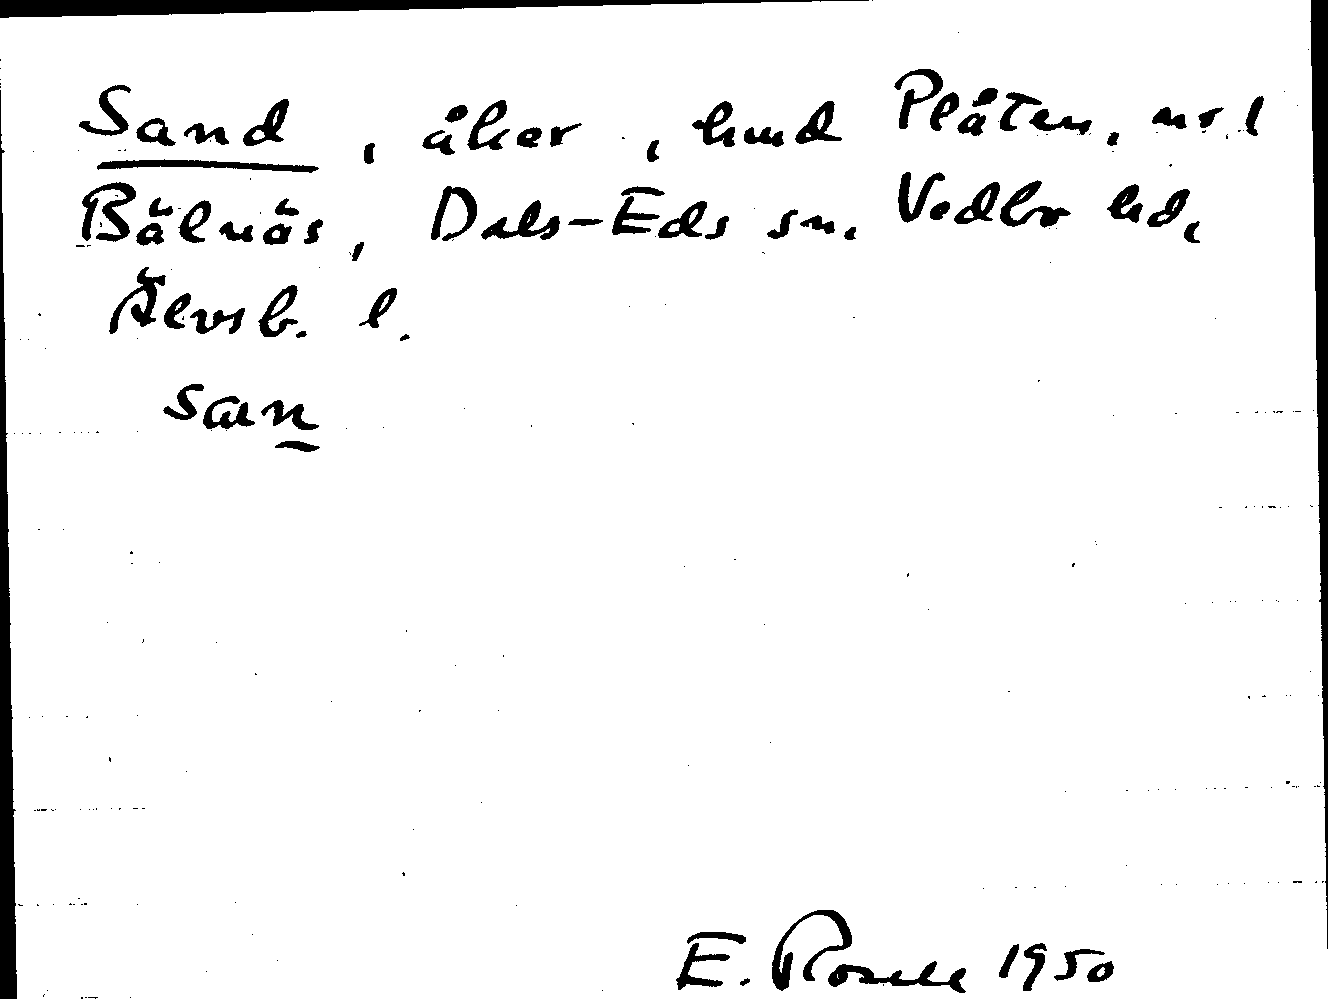 Sand, åker, hmd Plåten, nr 1
Bälnäs, Dals-Eds sn. Vedbo hd,
Älvsb. l.
san
E. Rosell 1950